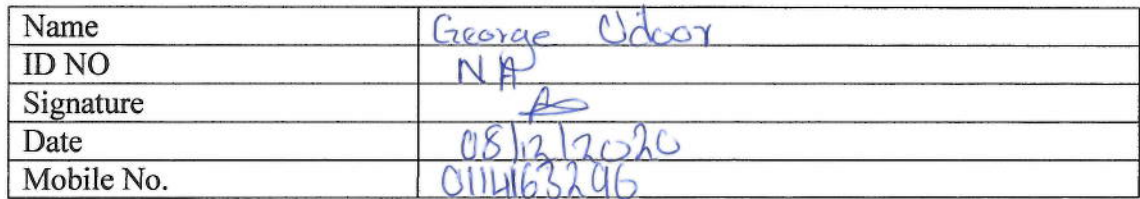 Name George Udoor
ID NO NA
Signature
Date 08/12/2020
Mobile No. 0114163296